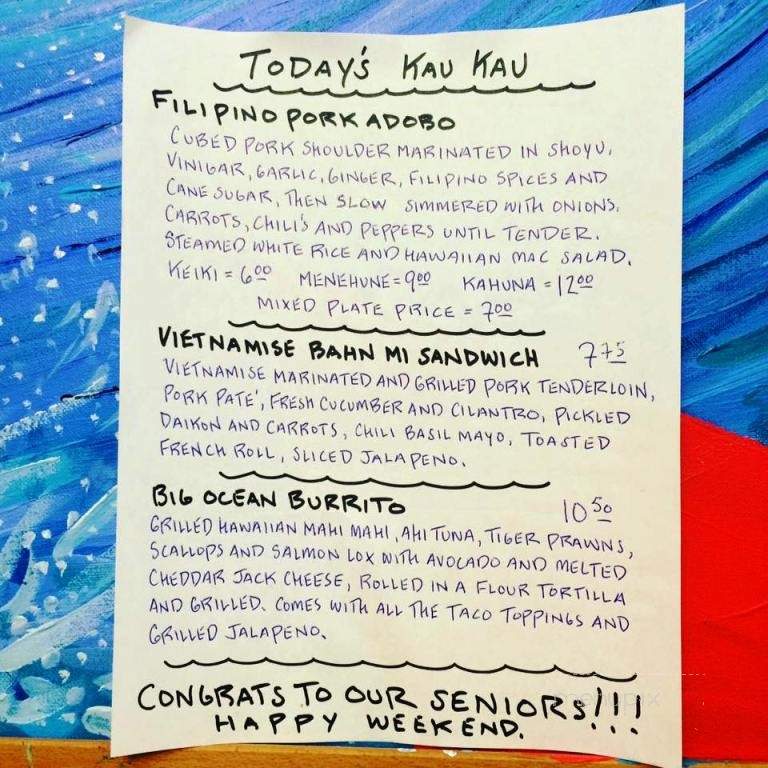 TODAY'S KAU KAU
FILIPINO PORK ADOBO
CUBED PORK SHOULDER MARINATED IN SHOYU,
VINIGAR, GARLIC, GINGER, FILIPINO SPICES AND
CANE SUGAR, THEN SLOW SIMMERED WITH ONIONS,
CARROTS, CHILI'S AND PEPPERS UNTIL TENDER.
STEAMED WHITE RICE AND HAWAIIAN MAC SALAD.
KEIKI = 6 00 MENEHUNE = 9 00 KAHUNA = 12 00
MIXED PLATE PRICE = 7 00
VIETNAMISE BAHN MI SANDWICH 7 75
VIETNAMISE MARINATED AND GRILLED PORK TENDERLOIN,
PORK PATE', FRESH CUCUMBER AND CILANTRO, PICKLED
DAIKON AND CARROTS, CHILI BASIL MAYO, TOASTED
FRENCH ROLL, SLICED JALAPENO.
BIG OCEAN BURRITO 10 50
GRILLED HAWAIIAN MAHI MAHI, AHI TUNA, TIGER PRAWNS,
SCALLOPS AND SALMON LOX WITH AVOCADO AND MELTED
CHEDDAR JACK CHEESE, ROLLED IN A FLOUR TORTILLA
AND GRILLED. COMES WITH ALL THE TACO TOPPINGS AND
GRILLED JALAPENO.
CONGRATS TO OUR SENIORS!!!
HAPPY WEEKEND.